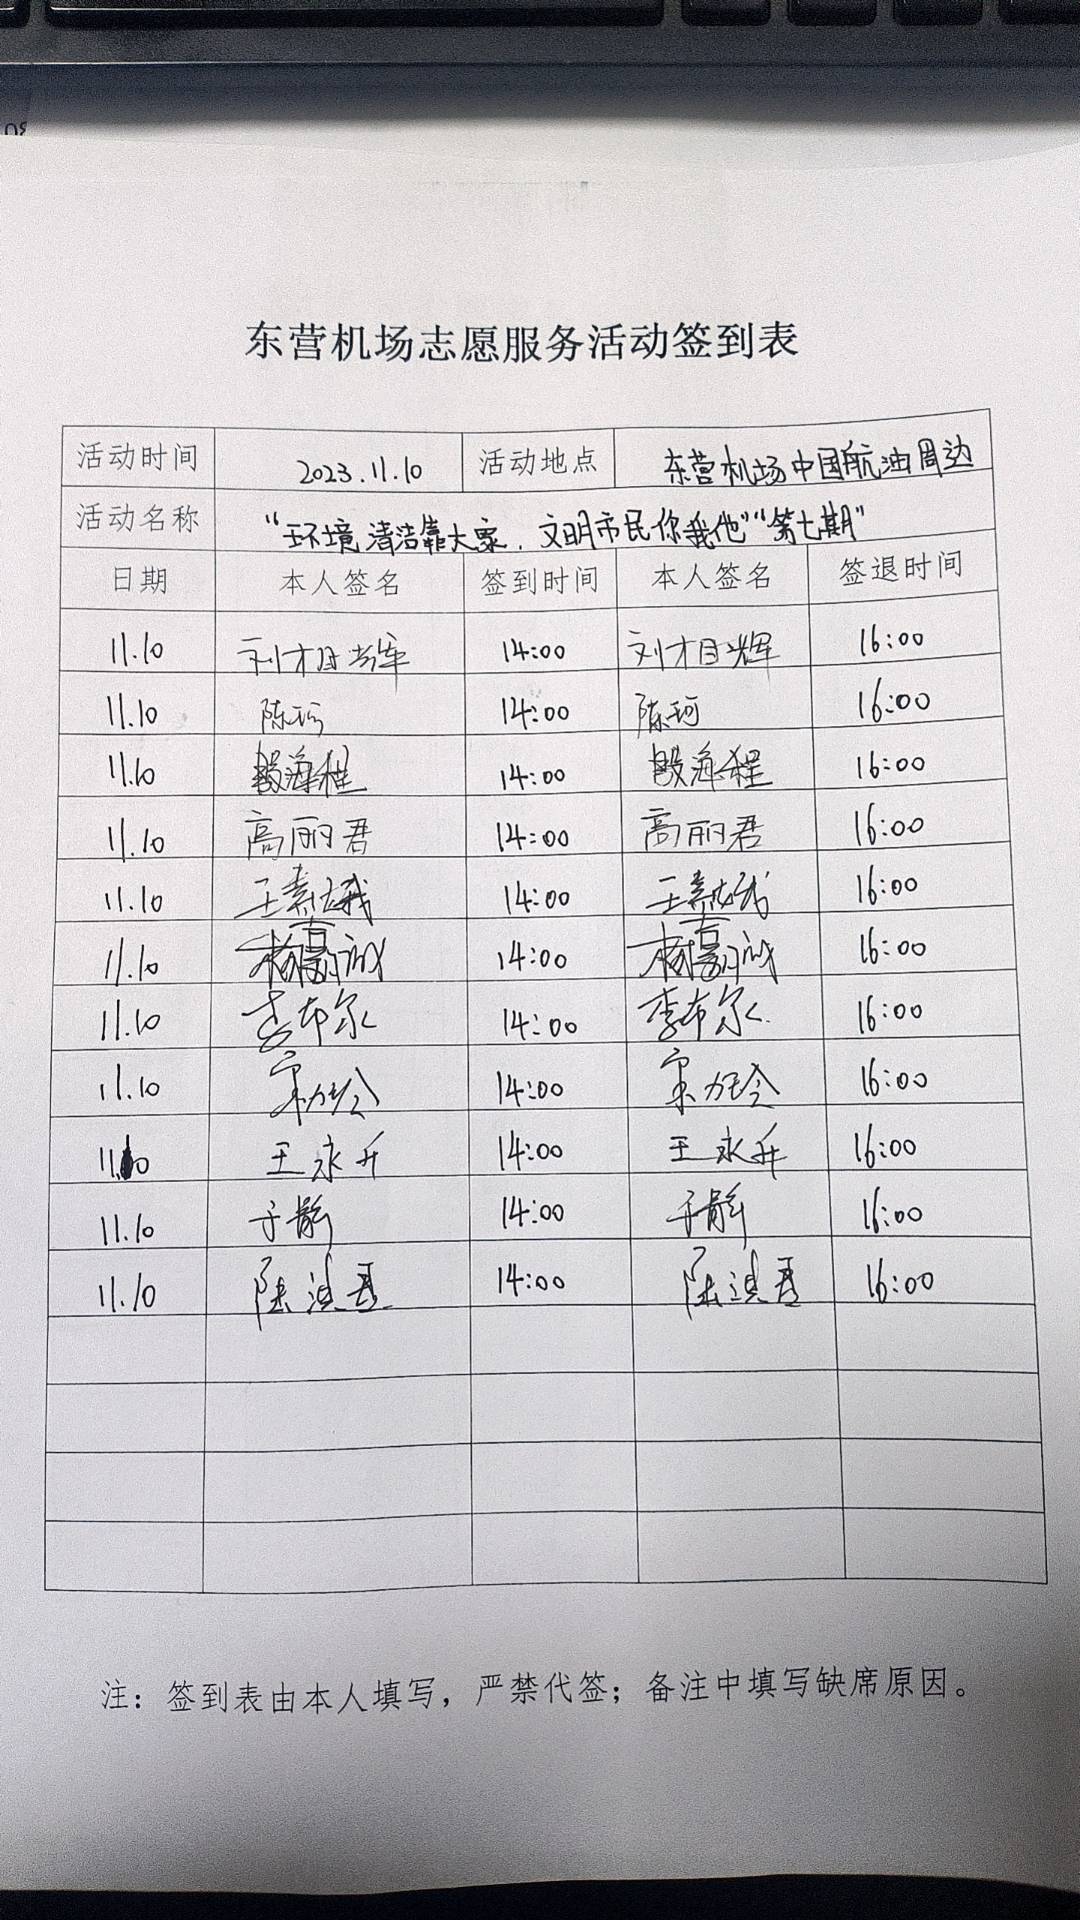 东营机场志愿服务活动签到表
活动时间 2023.11.10 活动地点 东营机场中国航油周边
活动名称 “环境清洁靠大家,文明市民你我他”“第七期”
日期 本人签名 签到时间 本人签名 签退时间
11.10 刘相辉 14:00 刘相辉 16:00
11.10 陈珂 14:00 陈珂 16:00
11.10 殷海程 14:00 殷海程 16:00
11.10 高丽君 14:00 高丽君 16:00
11.10 王素娥 14:00 王素娥 16:00
11.10 14:00 16:00
11.10 李布尔 14:00 李布尔 16:00
11.10 14:00 16:00
11.10 王永升 14:00 王永升 16:00
11.10 于静 14:00 于静 16:00
11.10 14:00 16:00
注:签到表由本人填写,严禁代签;备注中填写缺席原因。